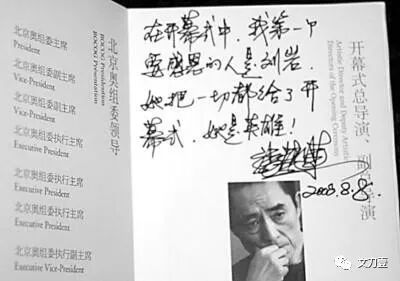 北京奥组委领导
BOCOG Presentation
北京奥组委主席
President
北京奥组委副主席
Vice-President
北京奥组委副主席
Vice-President
北京奥组委执行主席
Executive President
北京奥组委执行主席
Executive President
北京奥组委执行主席
Executive President
北京奥组委执行主席
Executive President
北京奥组委执行副主席
Executive Vice-President
在开幕式中,我第一个
要感恩的人是刘岩.
她把一切都给了开
幕式.她是英雄!
张艺谋
2008.8.8.
开幕式总导演、副总导演
Artistic Director and Deputy Artistic
Directors of the Opening Ceremony
文刀壹